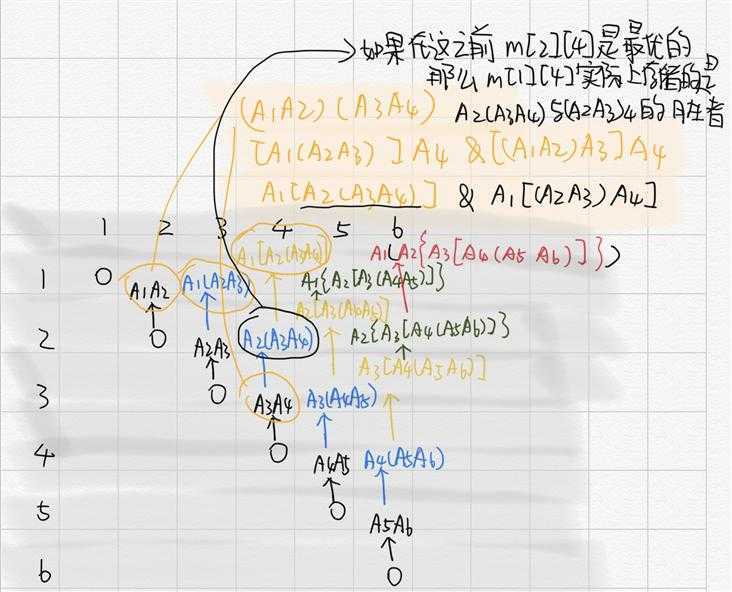 如果在这之前 m[2][4]是最优的
那么 m[1][4]实际上存储的是
(A1A2)(A3A4) A2(A3A4)与(A2A3)4的胜者
[A1(A2A3)]A4 & [(A1A2)A3]A4
A1[A2(A3A4)] & A1[(A2A3)A4]
1 2 3 4 5 6
A1[A2(A3A4)] A1(A2{A3[A4(A5A6)]})
1 0 A1A2 A1(A2A3) A1{A2[A3(A4A5)]}
0 A2[A3(A4A5)]
2 A2A3 A2(A3A4) A2{A3[A4(A5A6)]}
0 A3[A4(A5A6)]
3 A3A4 A3(A4A5)
0
4 A4A5 A4(A5A6)
0
5 A5A6
0
6